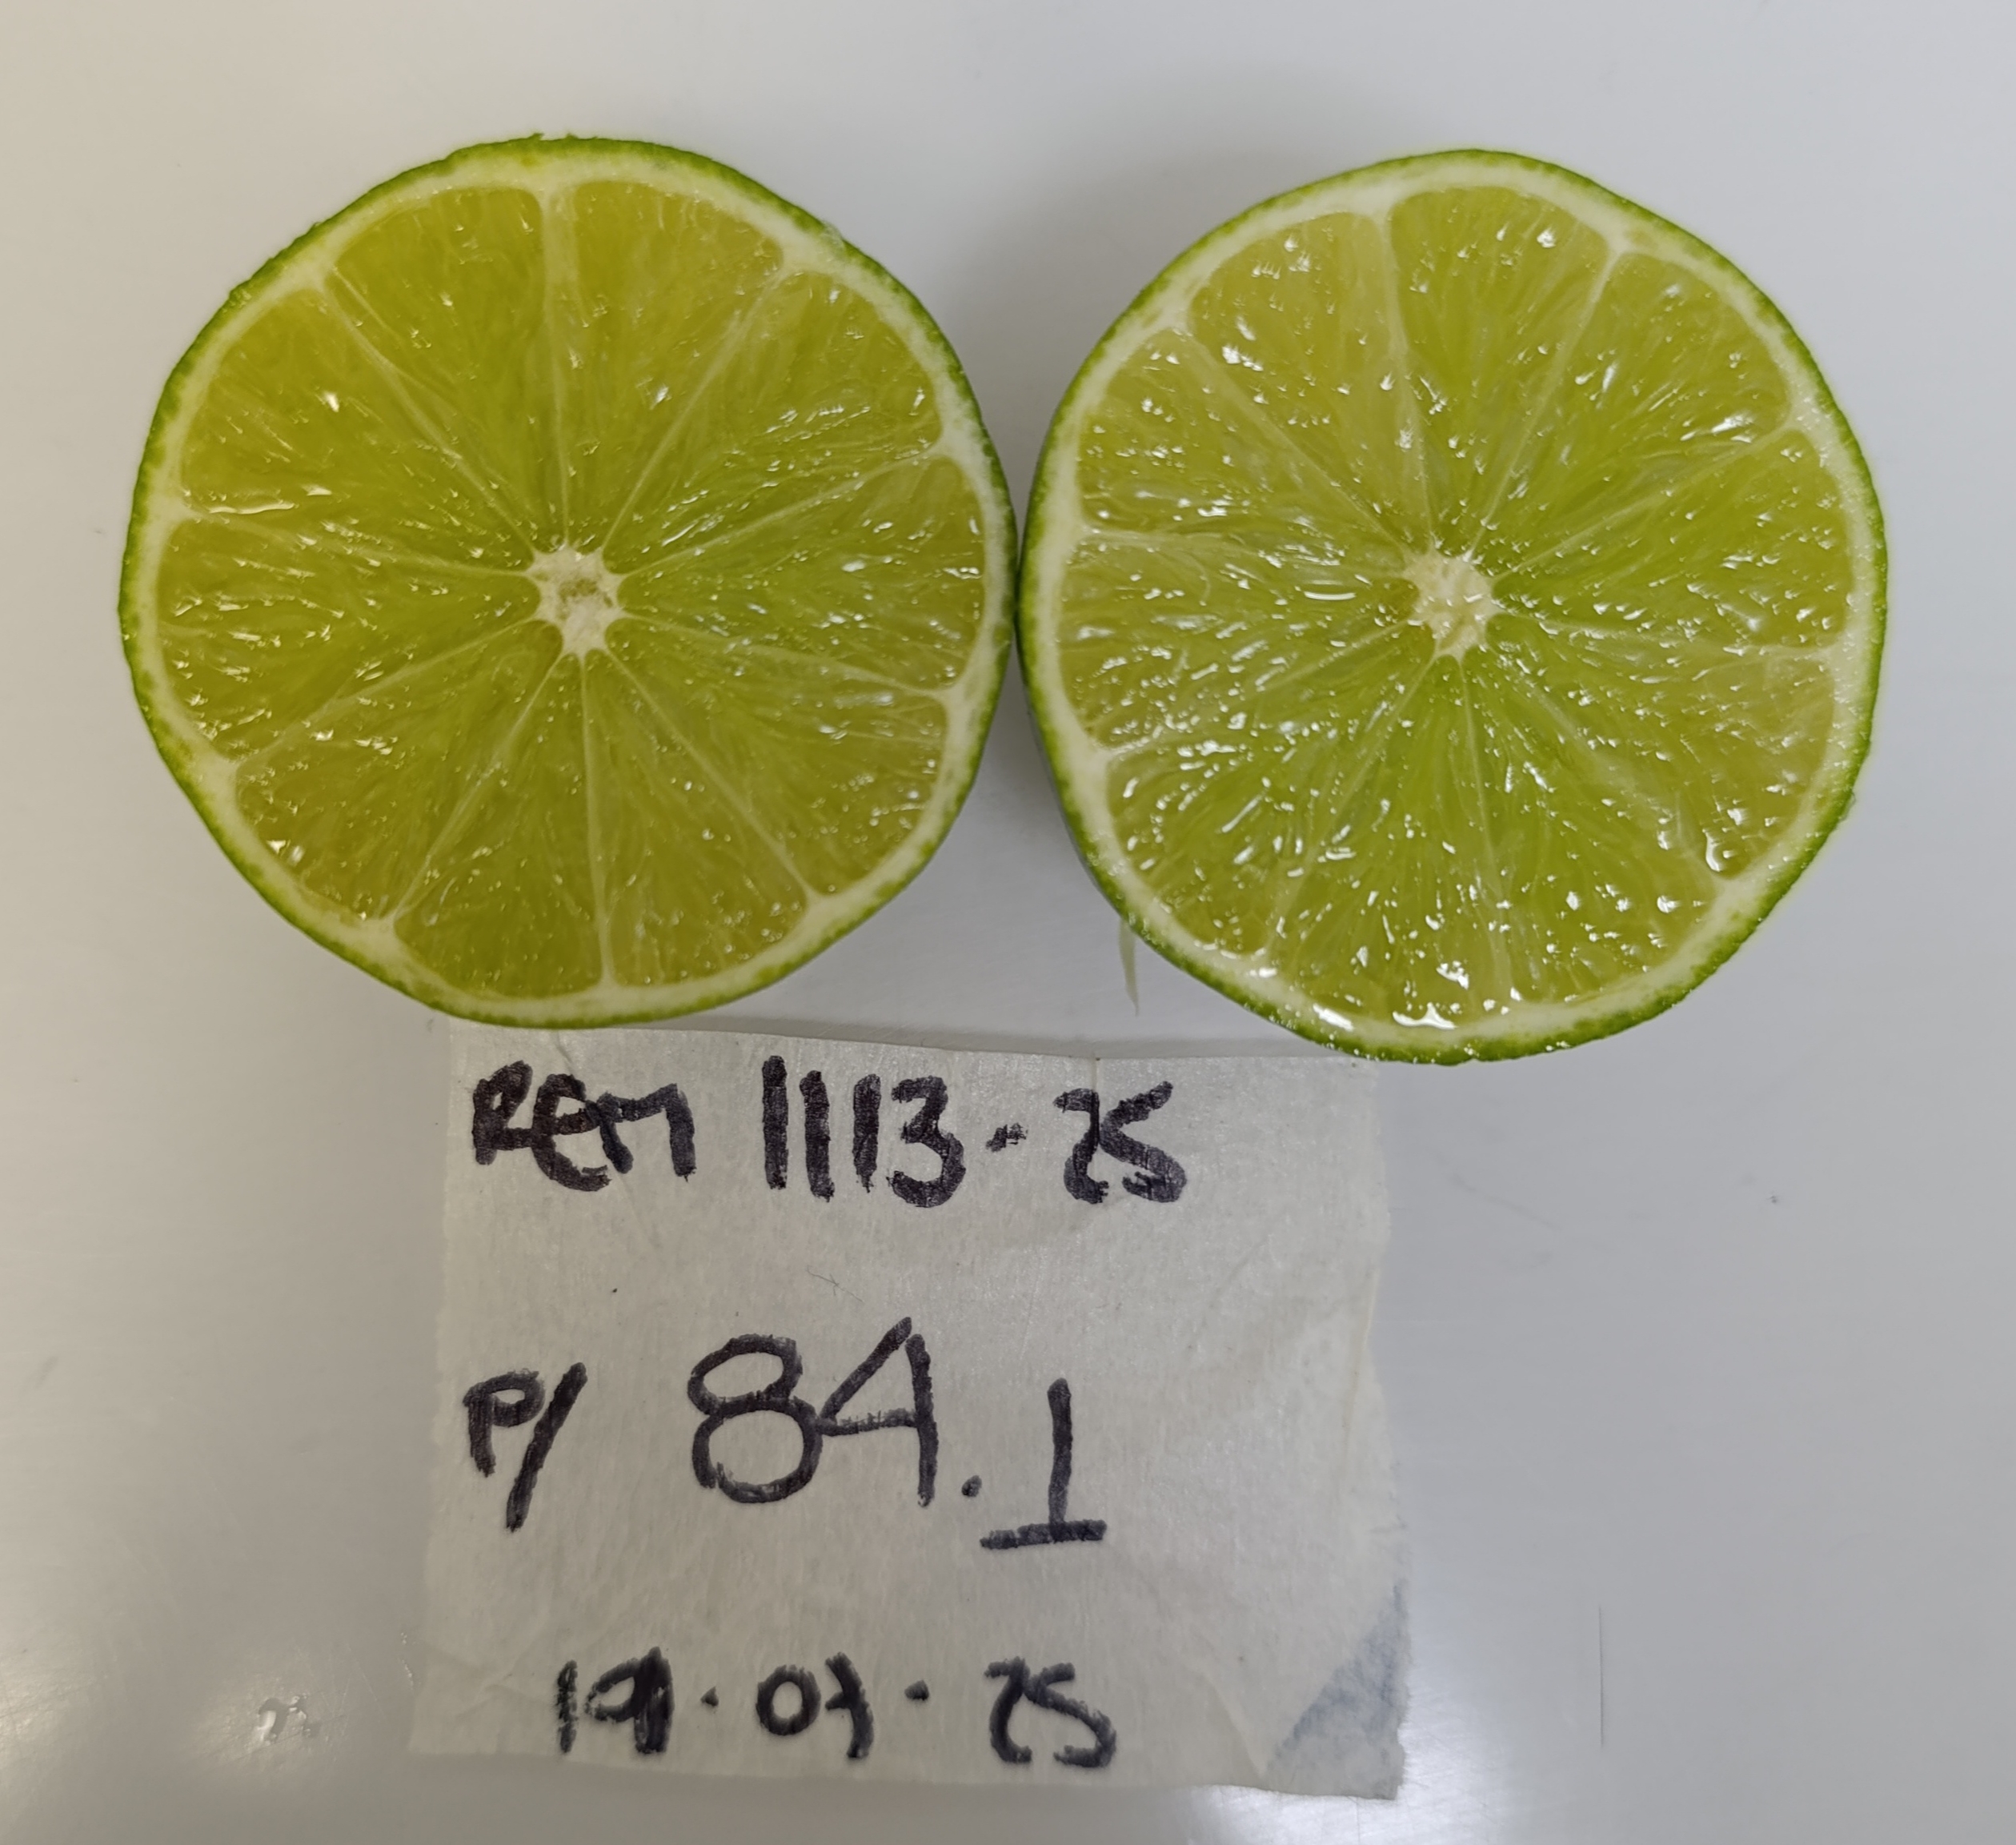 REM 1113-25
P/ 84.1
19.07-25